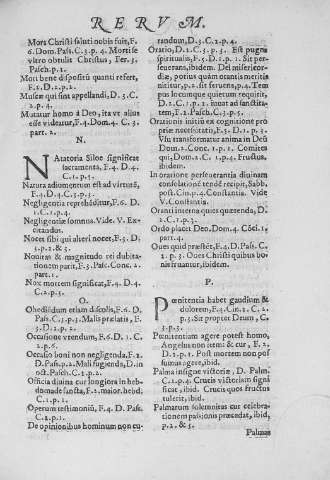 RERVM.
Mors Christi saluti nobis fuit, F.
6. Dom. Pass. C. 3. p. 4. Morti se
vltro obtulit Christus, Fer. 3.
Pasch. p. 2.
Mori bene dispositū quanti refert,
F. 1. D. 2. p. 2.
Musæ qui sint appellandi, D. 3. C.
2. p. 4.
Mutatur homo à Deo, ita vt alius
esse videatur, F. 4. Dom. 4. C. 3.
part. 2.
N.
NAtatoria Siloe significat
sacramenta, F. 4. D. 4.
C. 1. p. 5.
Natura adiumentum est ad virtutē,
F. 4. D. 4. C. 3. p. 3.
Negligentia reprehēditur, F. 6. D.
1. C. 1. p. 4.
Negligentiæ somnus. Vide V. Ex-
citandus.
Nocet sibi qui alteri nocet, F. 3. D.
3. p. 2. & 3.
Nouitas & magnitudo rei dubita-
tionem parit, F. 3. Pasc. Conc. 2.
part. 1.
Nox mortem significat, F. 4. D. 4.
C. 2. p. 3.
O.
Obediendum etiam discolis, F. 6. D.
Pass. C. 3. p. 3. Malis prælatis, F.
3. D. 2. p. 2.
Occasione vtendum, F. 6. D. 1. C.
2. p. 6.
Occasio boni non negligenda, F. 2.
D. Pass. p. 2. Mali fugienda, D. in
oct. Pasch. C. 2. p. 1.
Officia diuina cur longiora in heb-
domade sancta, F. 2. maior. hebd.
C. 1. p. 1.
Operum testimoniū, F. 4. D. Pass.
C. 2. p. 1.
De opinionibus hominum non cu-
randum, D. 3. C. 2. p. 4.
Oratio, D. 2. C. 3. p. 3. Est pugna
spiritualis, F. 5. D. 1. p. 1. Sit per-
seuerans, ibidem. Dei misericor-
diæ, potius quàm orantis meritis
nititur, p. 2. sit feruens, p. 4. Tem
pus locumque quietum requirit,
D. 2. C. 1. p. 2. iuuat ad sanctita-
tem, F. 2. Pasch. C. 3. p. 5.
Orationis initiū ex cognitione pro
priæ necessitatis, F. 5. D. 1. p. 3.
Vsu transformatur anima in Deū
Dom. 2. Conc. 1. p. 2. Comites
qui, Dom. 2. C. 1. p. 4. Fructus,
ibidem.
In oratione perseuerantia diuinam
consolationē tendē recipit, Sabb.
post. Cin. p. 4. Constantia. Vide
V. Constantia.
Oranti interna quies quærenda, D.
2. C. 1. p. 3.
Ordo placet Deo, Dom. 4. Cōci. 15
part. 4.
Oues quid præstēt, F. 4. D. Pass. C.
2. p. 3. Oues Christi quibus bo-
nis fruantur, ibidem.
P.
POenitentia habet gaudium &
dolorem, F. 3. Cin. 2. C. 2.
p. 3. Sit propter Deum, C.
3. p. 3.
Pœnitentiam agere potest homo,
Angelus non item: & cur, F. 2.
D. 2. p. 1. Post mortem non pos
sumus agere, ibid.
Palma insigne victoriæ, D. Palm.
C. 1. p. 4. Crucis victoriam signi
ficat, ibid. Crucis quos fructus
tulerit, ibid.
Palmarum solemnitas cur celebra-
tionem passionis præcedat, ibid,
p. 2. & 3.
Palmas